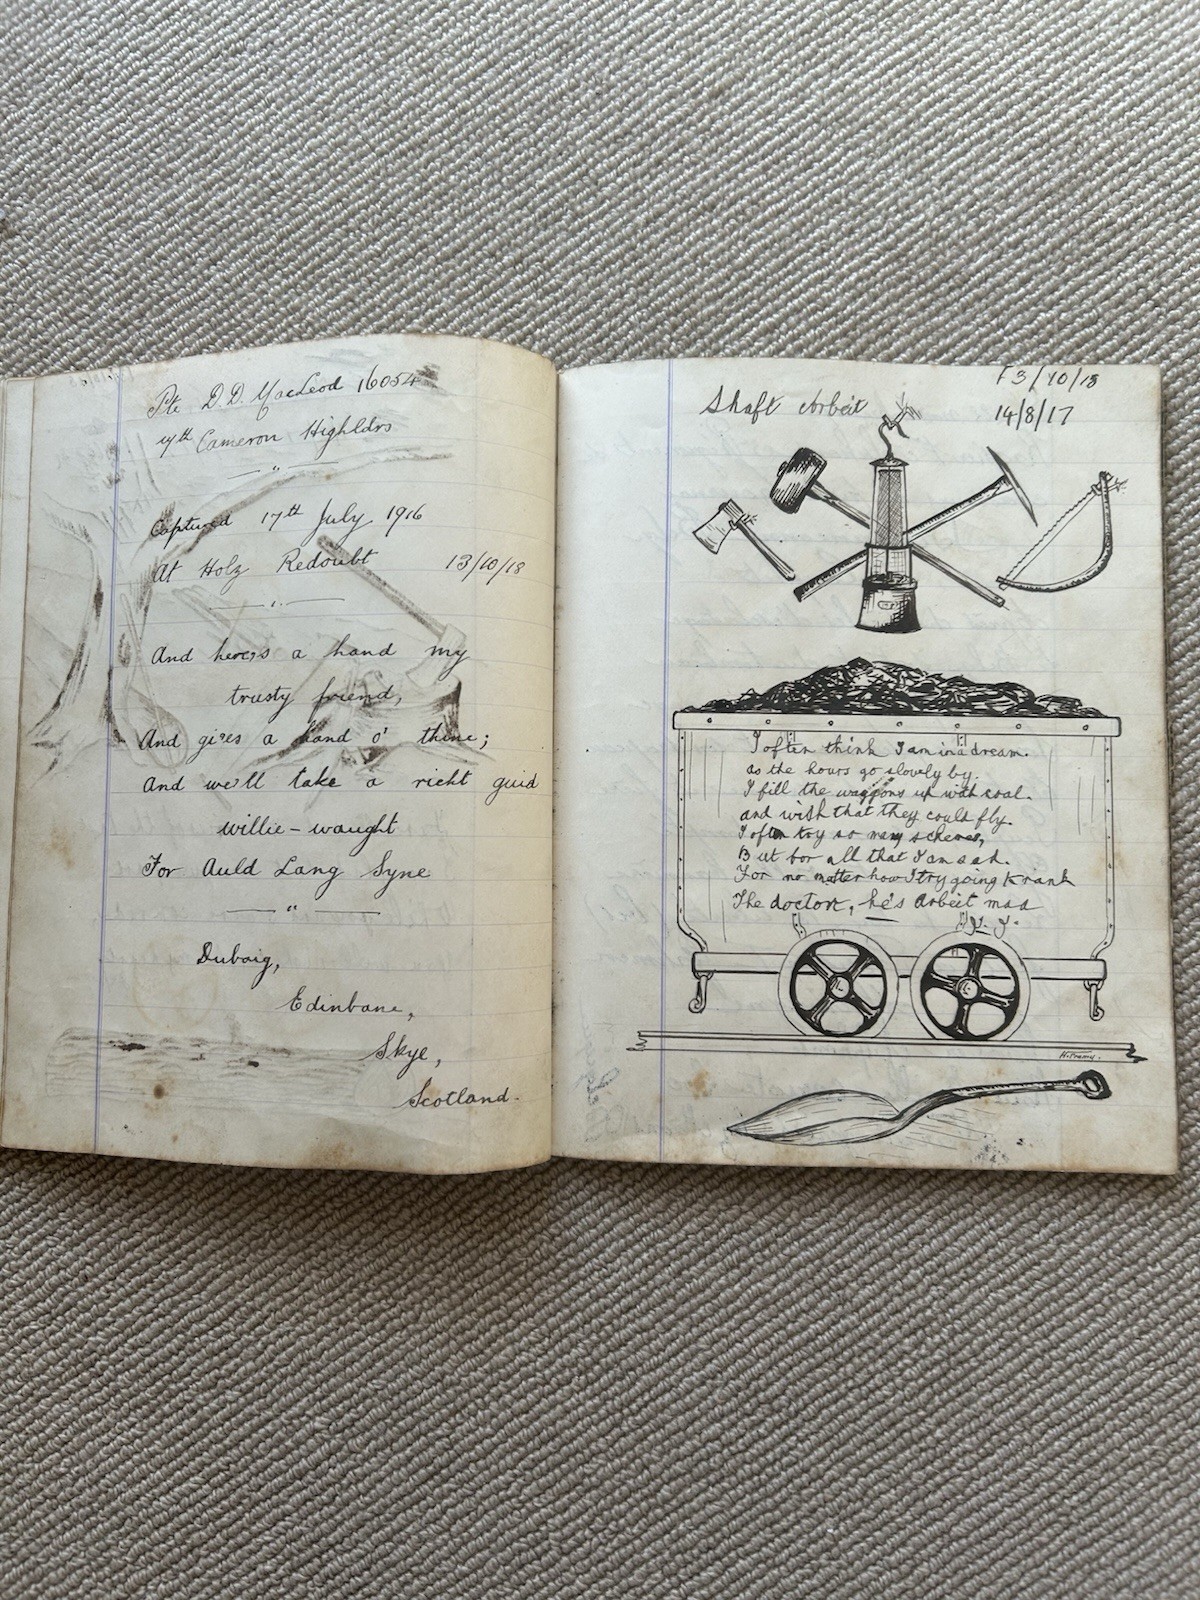 Pte D.D. MacLeod 16054
Cameron Highldrs
Captured 17th July 1916
At Holz Redoubt 13/10/18
And here's a hand my
trusty friend,
And gives a hand o' thine;
And we'll take a richt guid
willie-waught
For Auld Lang Syne
Duboig,
Edinbane,
Skye,
Scotland.
Shaft Arbeit
14/8/17
I often think I am in a dream.
as the hours go slowly by.
I fill the waggons up with coal.
and wish that they could fly.
I often try so many schemes,
But for all that I am sad.
For no matter how I try going Krank
The doctor, he's Arbeit mad